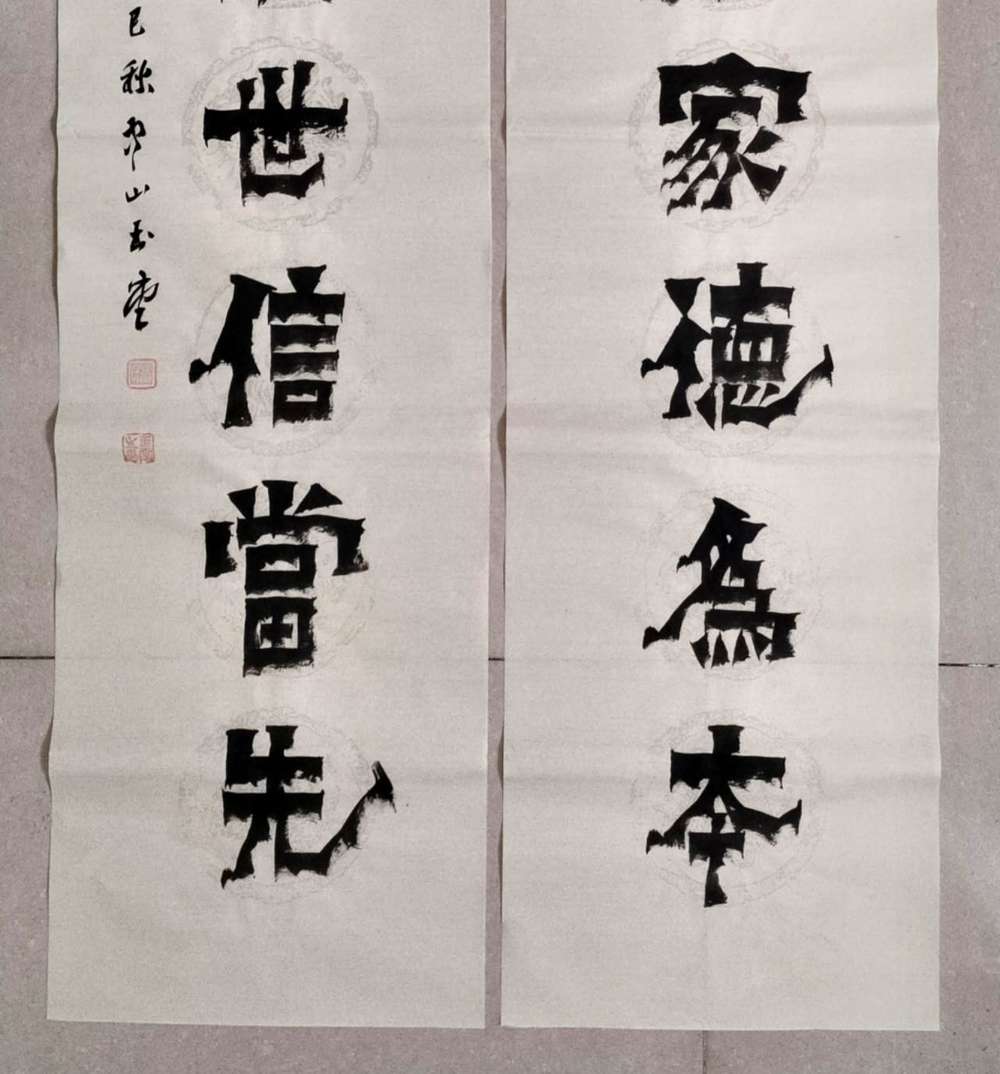 家德為本
世信當先
巳秋山玉